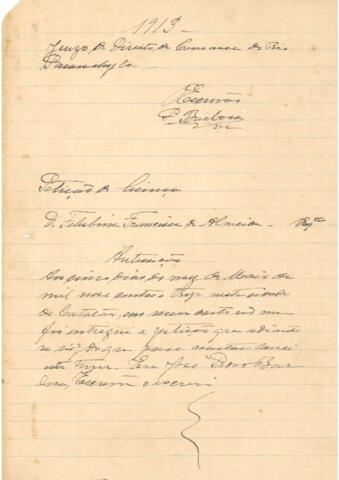 1913
Juizo de Direito da Comarca do Rio
Paranahyba
Escrivão
P. Barbosa
Petição de licença
D. Francisca de Almeida
Autuação
Aos cinco dias do mez de Maio de
mil nove centos e treze nesta cidade
de Catalão, em meu cartorio me
foi entregue a petição que adiante
se vê; do que para constar lavrei
este termo. Eu José
Escrivão o escrevi